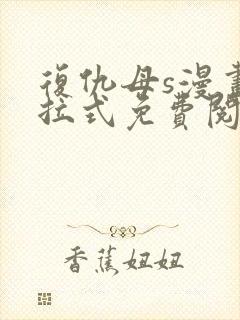 復仇母s漫畫
拉式免費閱
香蕉妞妞